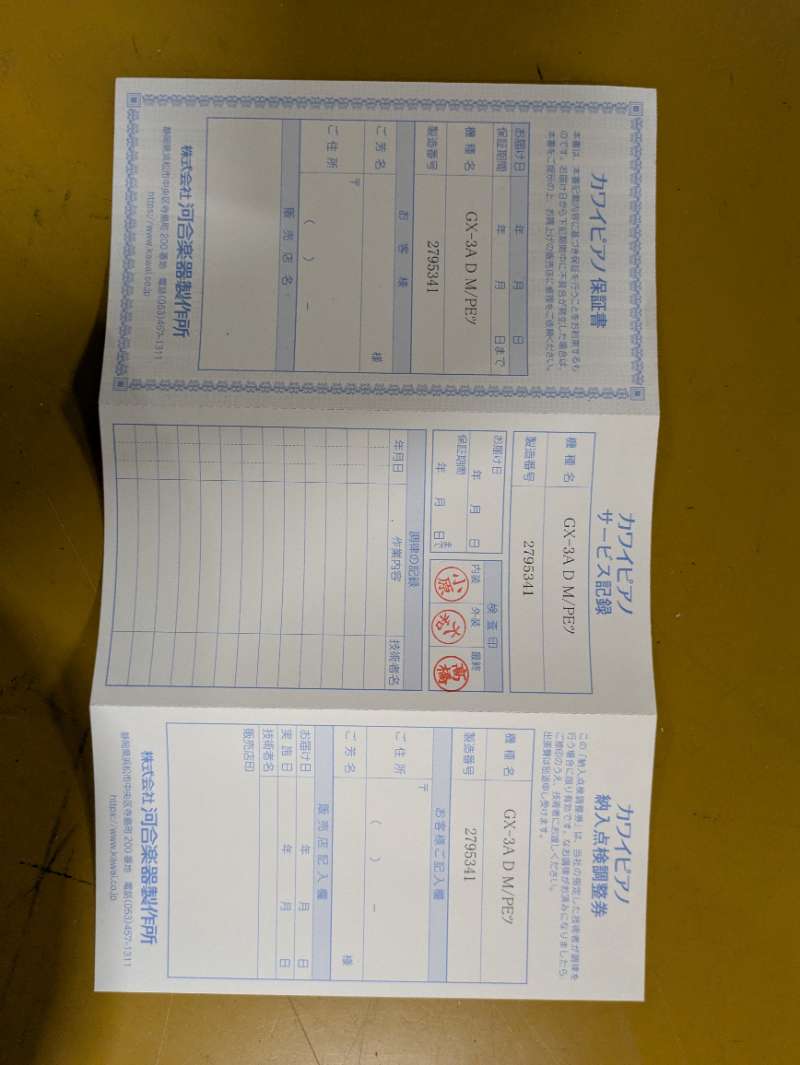 カワイピアノ 保証書
本書は、本書記載内容に基づき保証を行うことをお約束するも
のです。お届け日から下記期間中に不具合が発生した場合は、
本書をご提示の上、お買上げの販売店に修理をご依頼ください。
お届け日 年 月 日
保証期間 年 月 日まで
機種名 GX-3A D M/PEﾂ
製造番号 2795341
お客様
ご芳名 様
ご住所 〒
( ) -
販売店名
株式会社 河合楽器製作所
静岡県浜松市中央区寺島町 200 番地 電話(053)457-1311
https://www.kawai.co.jp
カワイピアノ
サービス記録
機種名 GX-3A D M/PEﾂ
製造番号 2795341
お届け日 年 月 日
保証期間 年 月 日まで
検査印
内装 外装 最終
小原 水谷 高橋
調律の記録
年月日 作業内容 技術者名
カワイピアノ
納入点検調整券
この「納入点検調整券」は、当社の指定した技術者が調律を
行う場合に限り有効です。なお調律がお済みになりましたら
ご捺印のうえ、技術者にお渡しください。
出張費は別途申し受けます。
機種名 GX-3A D M/PEﾂ
製造番号 2795341
お客様ご記入欄
ご住所 〒
( ) -
ご芳名 様
販売店記入欄
お届け日 年 月 日
実施日 年 月 日
技術者名
販売店印
株式会社 河合楽器製作所
静岡県浜松市中央区寺島町 200 番地 電話(053)457-1311
https://www.kawai.co.jp